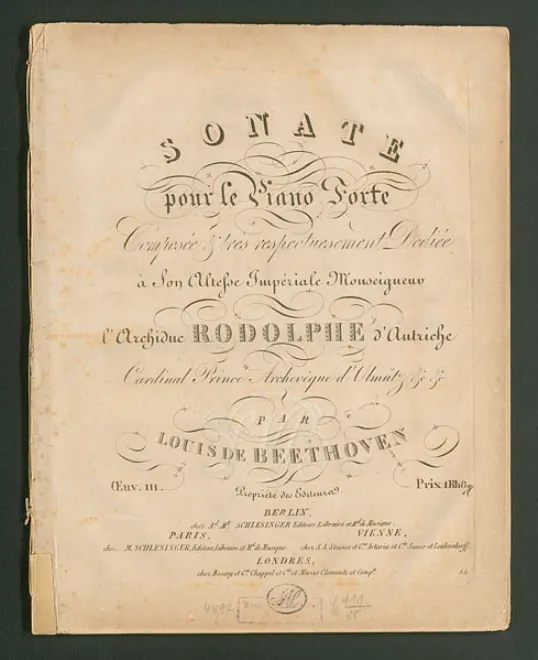 SONATE
pour le Piano Forte
Composée & très respectueusement Dediée
à Son Altesse Impériale Monseigneur
l'Archiduc RODOLPHE d'Autriche
Cardinal Prince Archevêque d'Olmütz &c &c
PAR
LOUIS DE BEETHOVEN
Œuv. 111. Prix 1 Rth 8 g
Propriété des Editeurs.
BERLIN,
chez Ad. Mt. SCHLESINGER Editeur Libraire et Md. de Musique.
PARIS, VIENNE,
chez M. SCHLESINGER, Editeur, Libraire et Md. de Musique. chez S.A. Steiner et Cie. Artaria et Cie. Sauer et Leidesdorff.
LONDRES,
chez Boosey et Cie. Chappel et Cie. et Muzio Clementi et Comp.